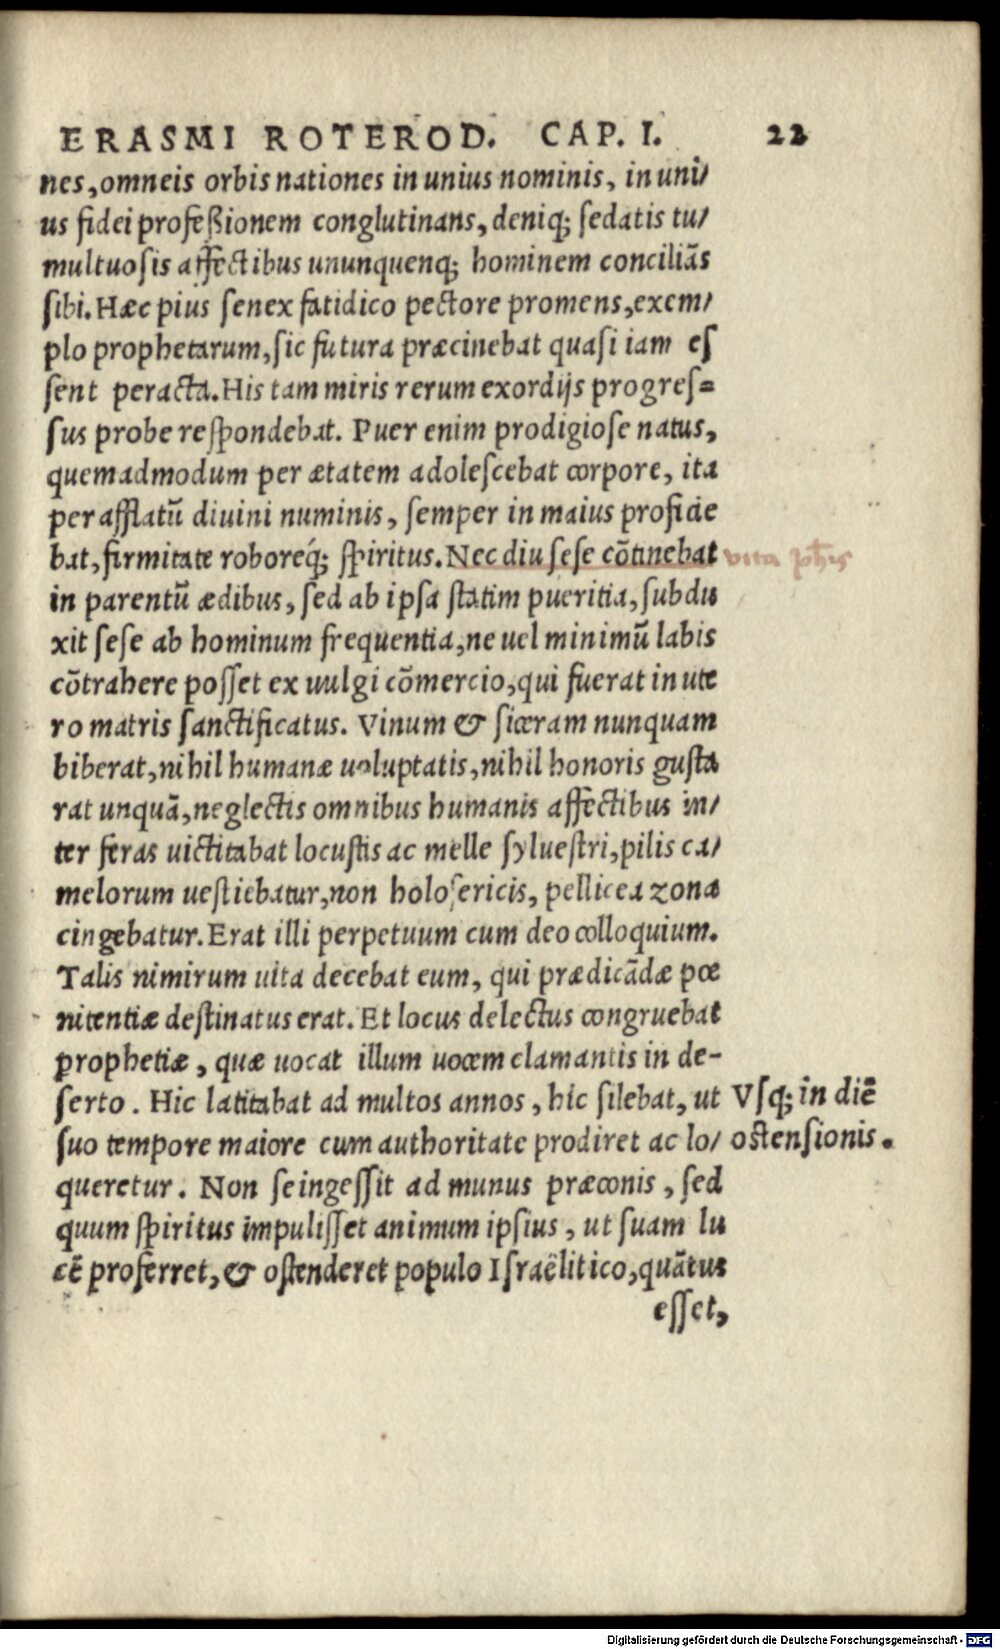 ERASMI ROTEROD. CAP. I. 22
nes, omneis orbis nationes in unius nominis, in uni/
us fidei profeßionem conglutinans, deniq; sedatis tu/
multuosis affectibus ununquenq; hominem conciliãs
sibi. Hæc pius senex fatidico pectore promens, exem/
plo prophetarum, sic futura præcinebat quasi iam es
sent peracta. His tam miris rerum exordijs progres=
sus probe respondebat. Puer enim prodigiose natus,
quemadmodum per ætatem adolescebat corpore, ita
per afflatũ diuini numinis, semper in maius proficie
bat, firmitate roboreq́; spiritus. Nec diu sese cõtinebat
in parentũ ædibus, sed ab ipsa statim pueritia, subdu
xit sese ab hominum frequentia, ne uel minimũ labis
cõtrahere posset ex uulgi cõmercio, qui fuerat in ute
ro matris sanctificatus. Vinum & siceram nunquam
biberat, nihil humanæ uoluptatis, nihil honoris gusta
rat unquã, neglectis omnibus humanis affectibus in/
ter feras uictitabat locustis ac melle syluestri, pilis ca/
melorum uestiebatur, non holosericis, pellicea zona
cingebatur. Erat illi perpetuum cum deo colloquium.
Talis nimirum uita decebat eum, qui prædicãdæ pœ
nitentiæ destinatus erat. Et locus delectus congruebat
prophetiæ, quæ uocat illum uocem clamantis in de-
serto. Hic latitabat ad multos annos, hic silebat, ut
suo tempore maiore cum authoritate prodiret ac lo/
queretur. Non se ingessit ad munus præconis, sed
quum spiritus impulisset animum ipsius, ut suam lu
cẽ proferret, & ostenderet populo Israëlitico, quãtus
esset,
vita
Vsq; in diẽ
ostensionis.
Digitalisierung gefördert durch die Deutsche Forschungsgemeinschaft - DFG